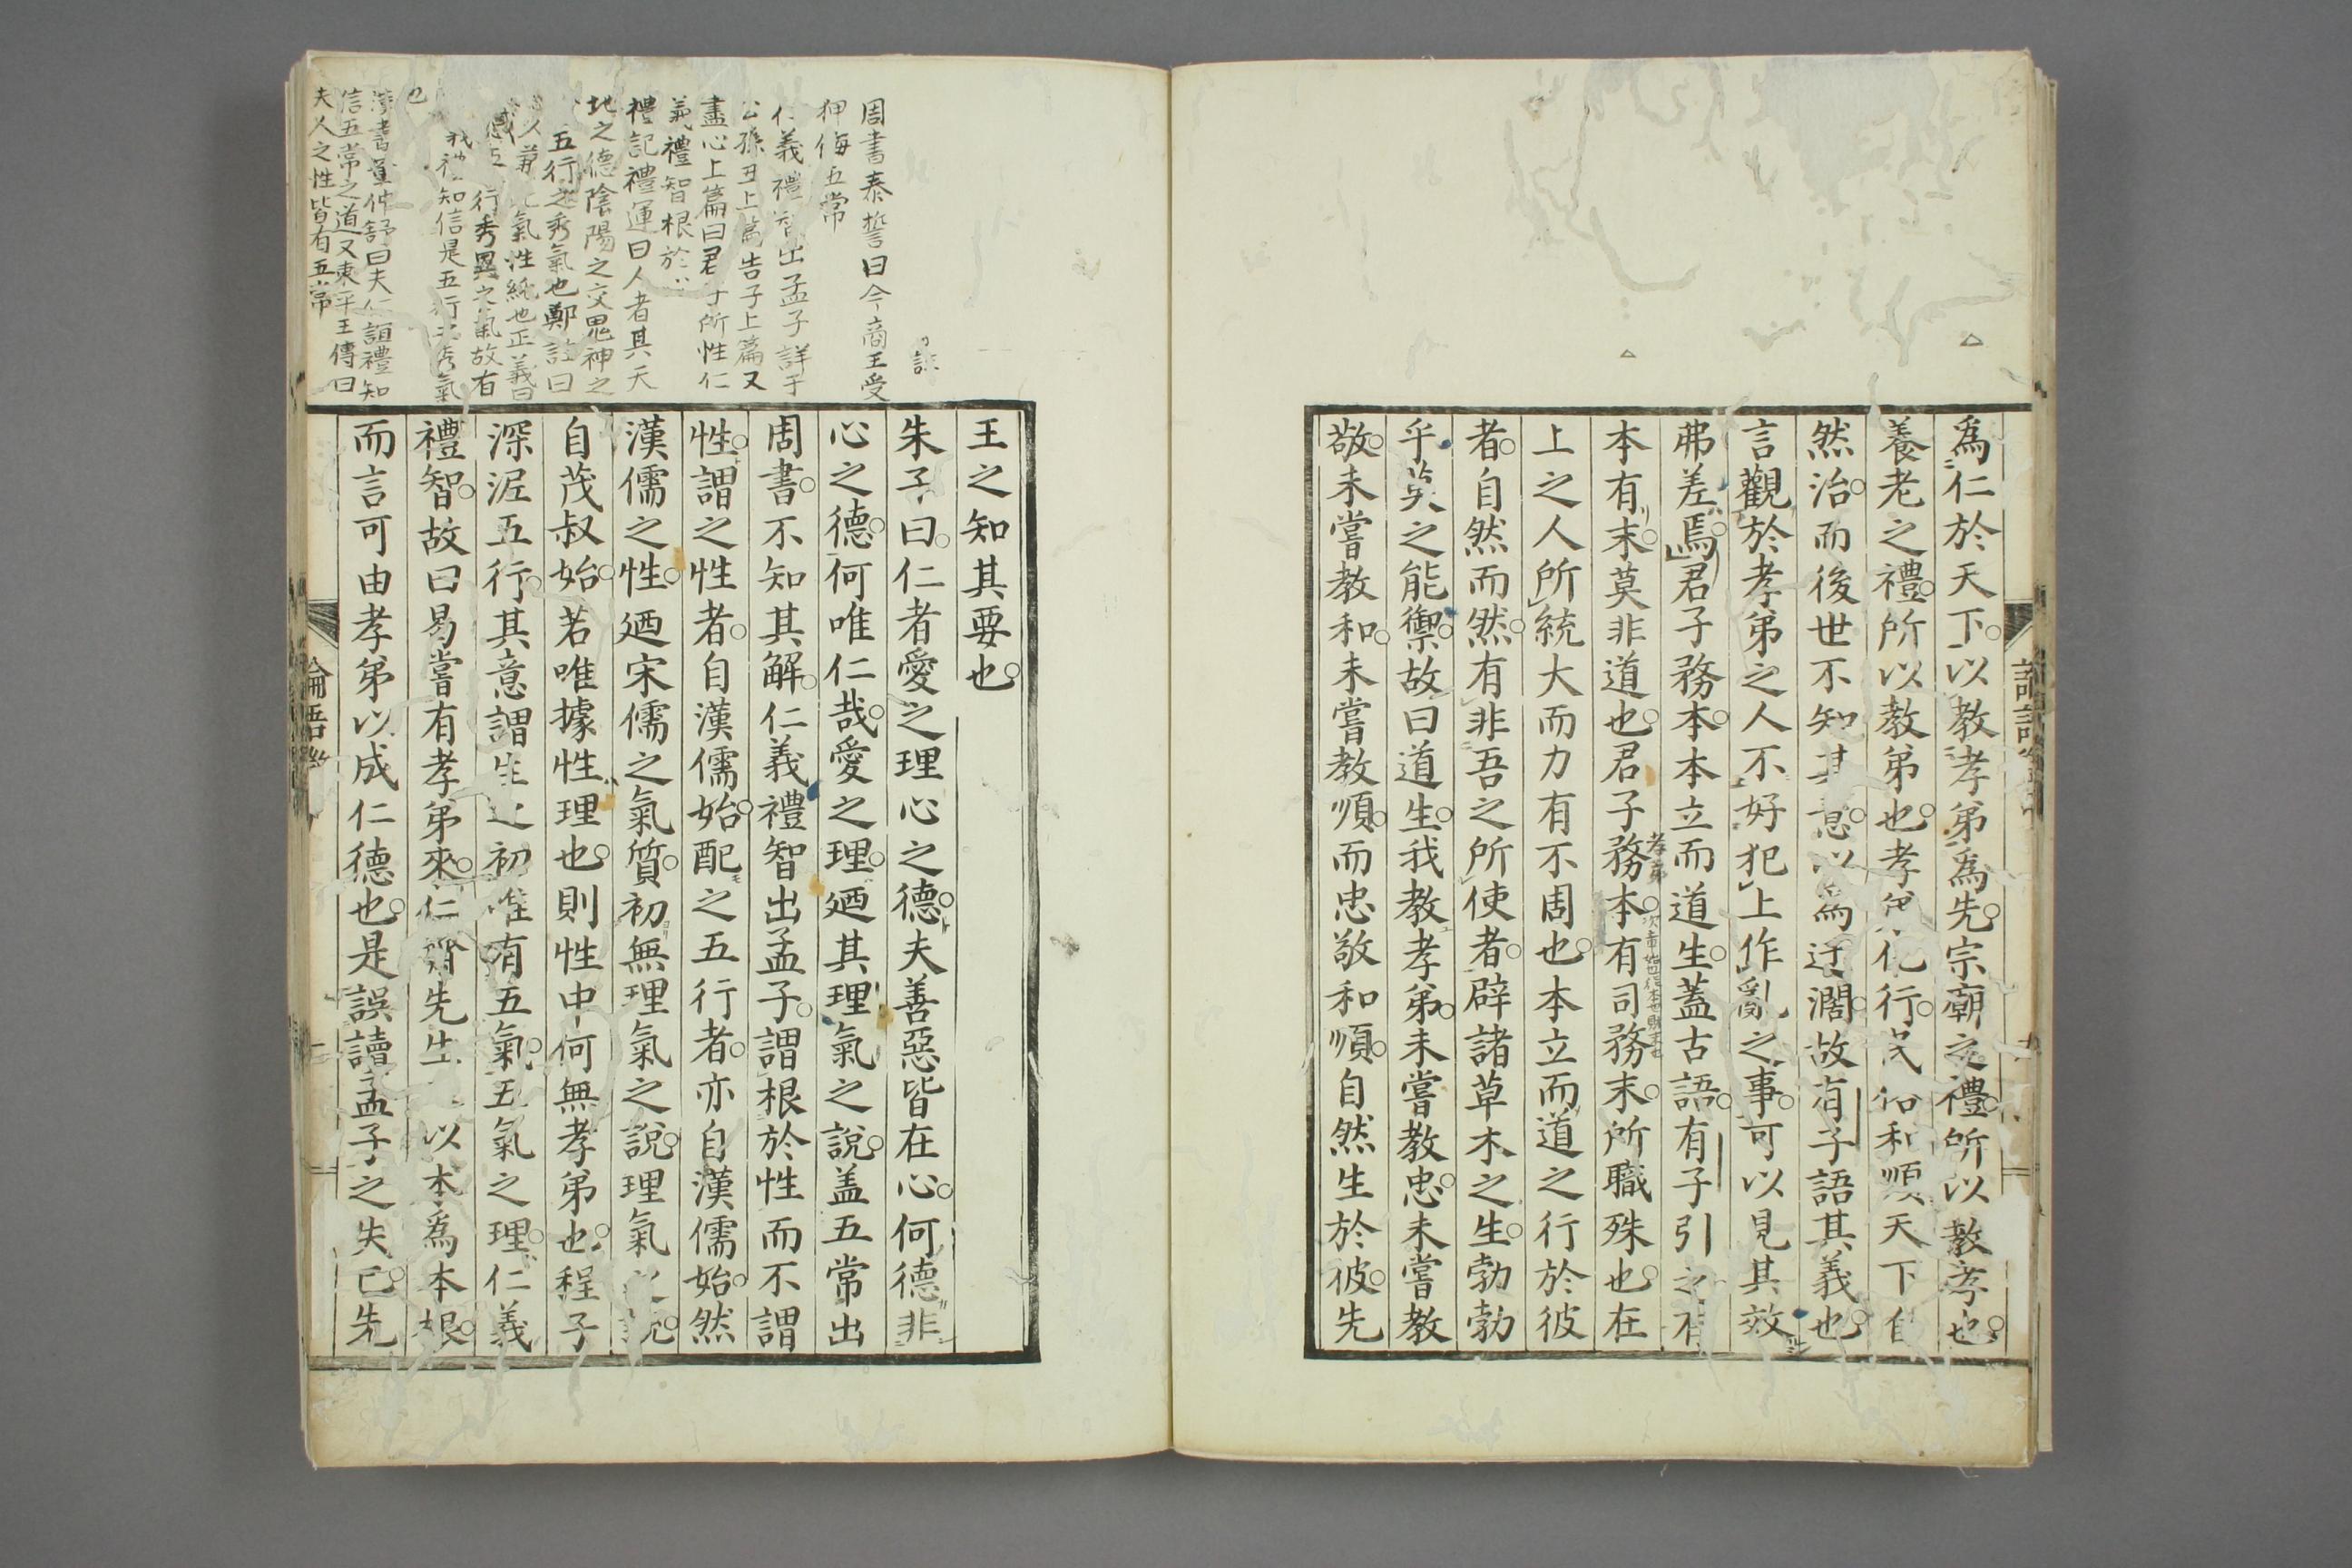 爲仁於天下以教孝弟爲先宗廟之禮所以教孝也
養老之禮所以教弟也孝行民俗和順天下自
然治而後世不知其意以爲迂濶故有子語其義也
言觀於孝弟之人不好犯上作亂之事可以見其效
弗差焉君子務本本立而道生蓋古語有子引之有
本有末莫非道也君子務本有司務末所職殊也在
孝弟
上之人所統大而力有不周也本立而道之行於彼
者自然而然有非吾之所使者辟諸草木之生勃勃
乎莫之能禦故曰道生我教孝弟未嘗教忠未嘗教
敬未嘗教和未嘗教順而忠敬和順自然生於彼先
周書泰誓曰今商王受
狎侮五常
仁義禮智出孟子詳于
公孫丑上篇告子上篇又
盡心上篇曰君子所性仁
義禮智根於心
禮記禮運曰人者其天
地之德陰陽之交鬼神之
五行之秀氣也鄭註曰
人兼此氣性純也正義曰
行秀異之氣故有
禮知信是五行之秀氣
也
漢書董仲舒曰夫仁誼禮知
信五常之道又東平王傳曰
夫人之性皆有五常
王之知其要也
朱子曰仁者愛之理心之德夫善惡皆在心何德非
心之德何唯仁哉愛之理廼其理氣之說盖五常出
周書不知其解仁義禮智出孟子謂根於性而不謂
性謂之性者自漢儒始配之五行者亦自漢儒始然
漢儒之性廼宋儒之氣質初無理氣之說理氣之說
自茂叔始若唯據性理也則性中何無孝弟也程子
深泥五行其意謂生之初唯有五氣五氣之理仁義
禮智故曰曷嘗有孝弟來仁齋先生以本爲本根
而言可由孝弟以成仁德也是誤讀孟子之失已先
論語